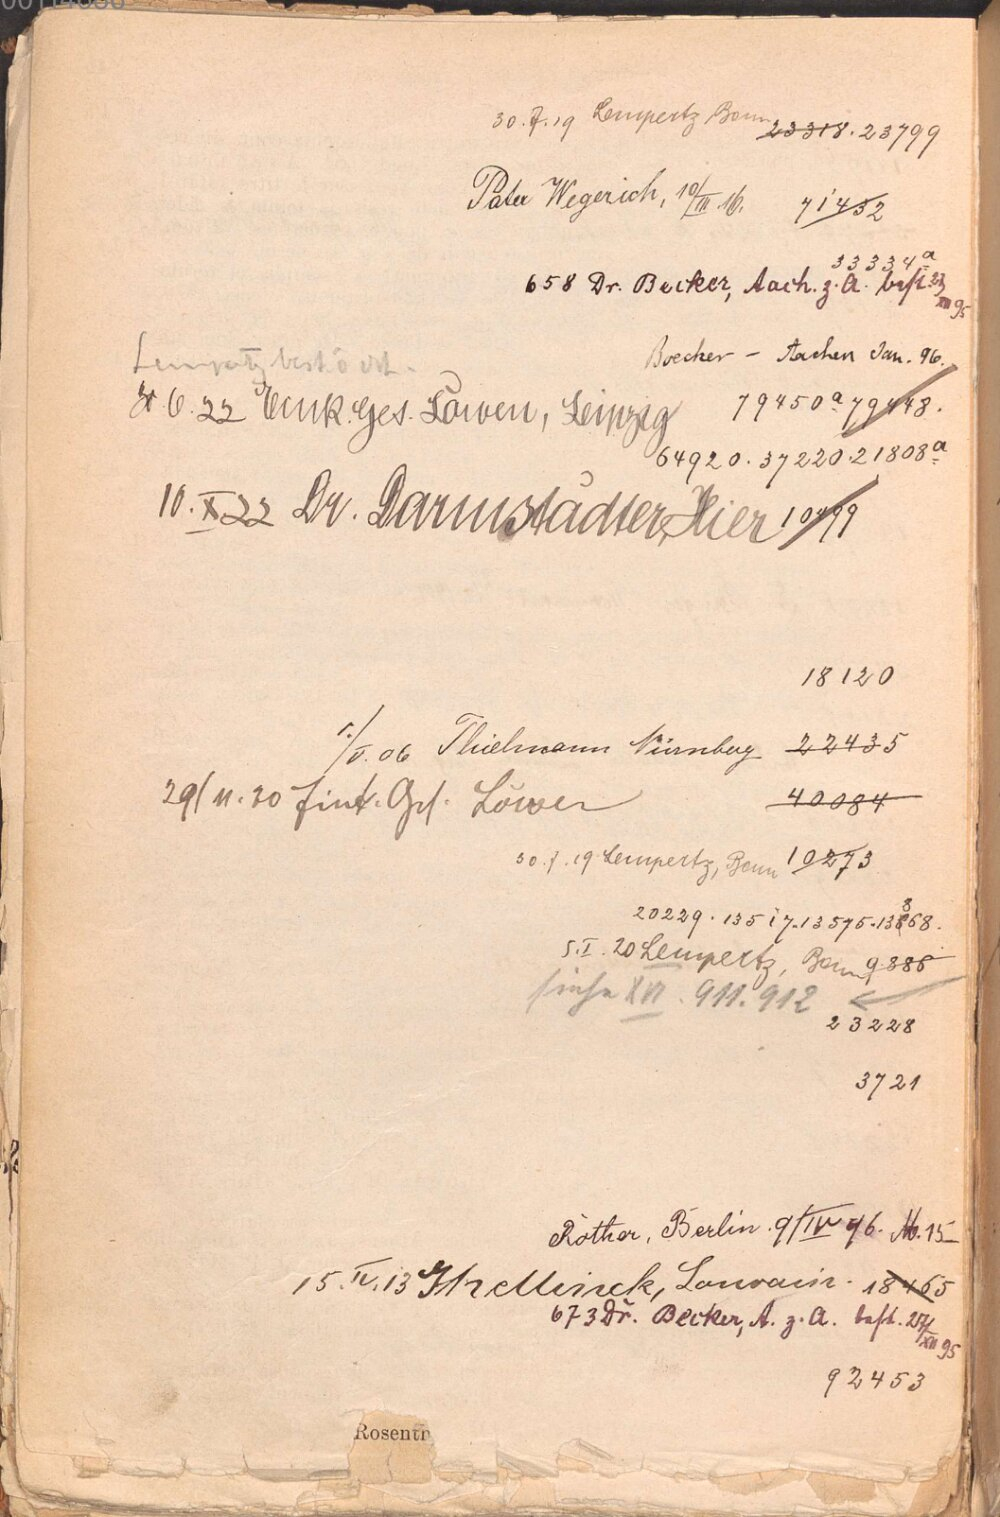 30.7.19 Lempertz Bonn 23318. 23799
Pater Wegerich, 10/III 16. 71452
33334a
658 Dr. Becker, Aach. z. A. best. 23/XII 95
Boecker - Aachen Jan. 96.
Lempertz best.
6.22 Eink. Ges. Löwen, Leipzig 79450a 79448.
64920. 37220. 21808a
10. X 22 Dr. Darmstädter, Hier 10499
18120
1./V. 06 Thielmann Nürnberg 22435
29/11.20 Eink. Ges. Löwen 40084
30.7.19 Lempertz, Bonn 10273
20229. 13517. 13575. 13868.
5.I.20 Lempertz, Bonn 9886
siehe XVI. 911. 912
23228
3721
Rother, Berlin. 9/IV 96. No. 15
15.IV.13 Louvain. 18465
673 Dr. Becker, A. z. A. best. 27/XII 95
92453
Rosenth